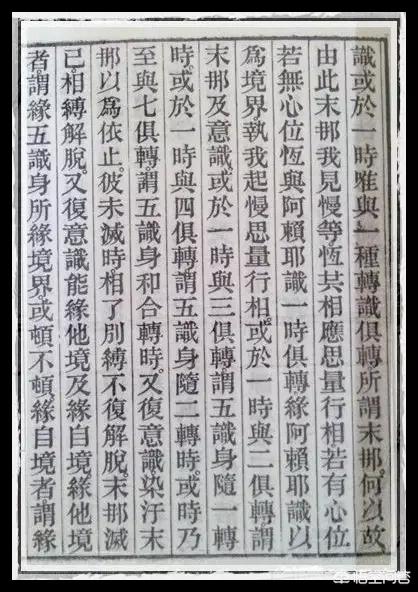 識或於一時唯與一種轉識俱轉所謂末那。何以故
由此末那我見慢等恆共相應思量行相若有心位
若無心位恆與阿賴耶識一時俱轉緣阿賴耶識以
爲境界。執我起慢思量行相。或於一時與二俱轉。謂
末那及意識。或於一時與三俱轉。謂五識身隨一轉
時。或於一時與四俱轉。謂五識身隨二轉時。或時乃
至與七俱轉。謂五識身和合轉時。又復意識染汙末
那以爲依止。彼未滅時。相了別縛不復解脫。末那滅
已。相縛解脫。又復意識能緣他境及緣自境。緣他境
者。謂緣五識身所緣境界。或頓不頓。緣自境者。謂緣
悟空问答